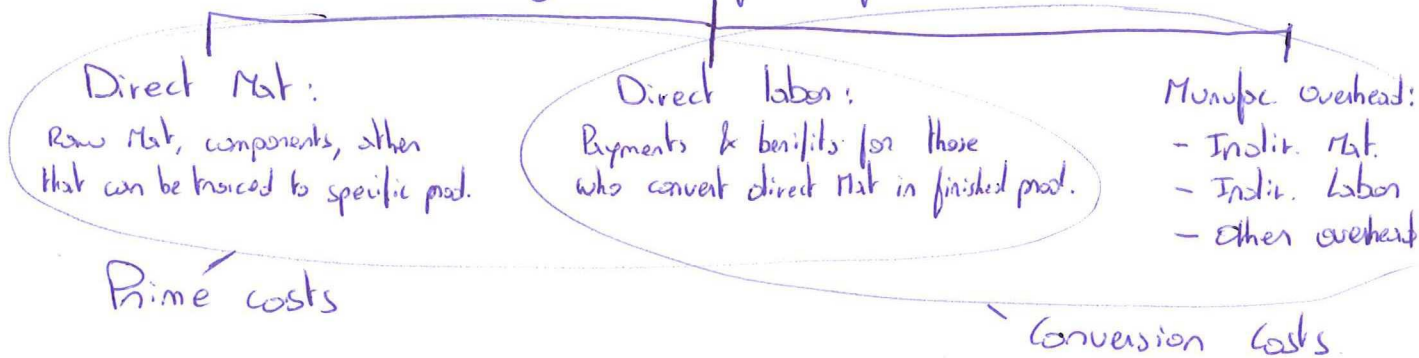 Direct Mat:
Raw Mat, components, other
that can be traiced to specific prod.
Direct labor:
Payments & benifits for those
who convert direct Mat in finished prod.
Manufac. overhead:
- Indir. Mat.
- Indir. Labor
- Other overhead
Prime costs
Conversion Costs